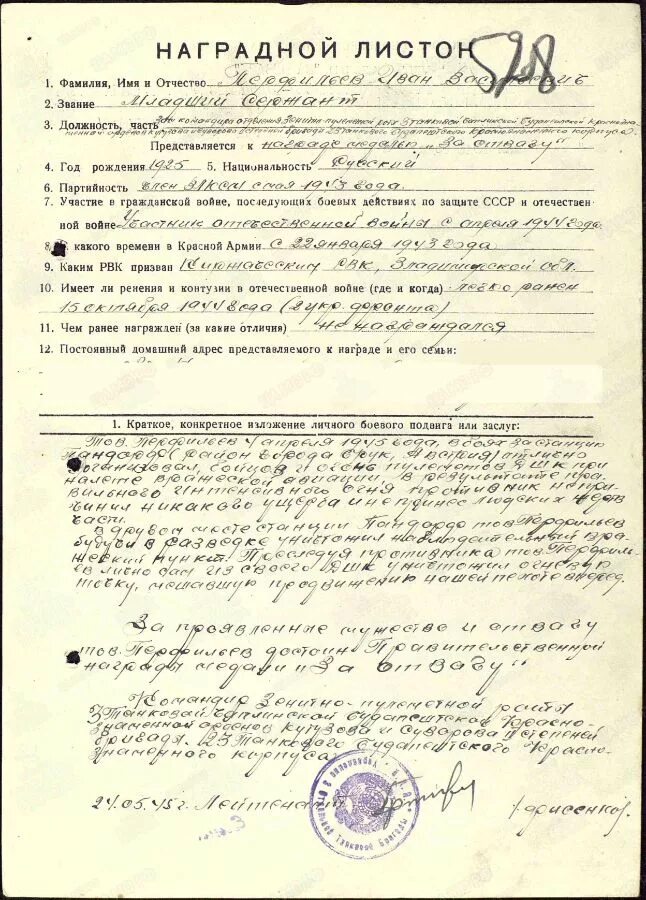 НАГРАДНОЙ ЛИСТОК
1. Фамилия, Имя и Отчество Перфильев Иван Васильевич
2. Звание Младший сержант
3. Должность, часть Зам командира отделения Зенитно пулеметной роты 3 танковой Чаплинской Будапештской Краснозна-
менной орденов Кутузова и Суворова бригады 23 Танкового Будапештского Краснознаменного корпуса
Представляется к награде медаль "За отвагу"
4. Год рождения 1925 5. Национальность Русский
6. Партийность член ВЛКСМ с мая 1943 года.
7. Участие в гражданской войне, последующих боевых действиях по защите СССР и отечествен-
ной войне Участник отечественной войны с апреля 1944 года
8. какого времени в Красной Армии с 22 января 1943 года
9. Каким РВК призван Киржачским РВК, Владимирской обл.
10. Имеет ли ренения и контузии в отечественной войне (где и когда) легко ранен
15 октября 1944 года (2 укр. фронта)
11. Чем ранее награжден (за какие отличия) не награждался
12. Постоянный домашний адрес представляемого к награде и его семьи:
1. Краткое, конкретное изложение личного боевого подвига или заслуг:
Тов. Перфильев 4 апреля 1945 года, в боях за станцию
Пандорф (район города Брук, Австрия) отлично
организовал, бойцов и огонь пулеметов ДШК при
налете вражеской авиации. В результате пра-
вильного интенсивного огня противник не при-
чинил никакого ущерба и не принес людских жертв
части.
В другом месте станции Пандорф тов Перфильев
будучи в разведке уничтожил наблюдательный вра-
жеский пункт. Преследуя противника тов. Перфиль-
ев лично сам из своего ДШК уничтожил огневую
точку, мешавшую продвижению нашей пехоте вперед.
За проявленные мужество и отвагу
тов. Перфильев достоин Правительственной
награды медали "За отвагу"
Командир Зенитно-пулеметной роты
3 Танковой Чаплинской Будапештской Красно-
знаменной орденов Кутузова и Суворова II степеней
бригады 23 Танкового Будапештского Красно-
знаменного корпуса
24.05.45г. Лейтенант
Танковой Бригады